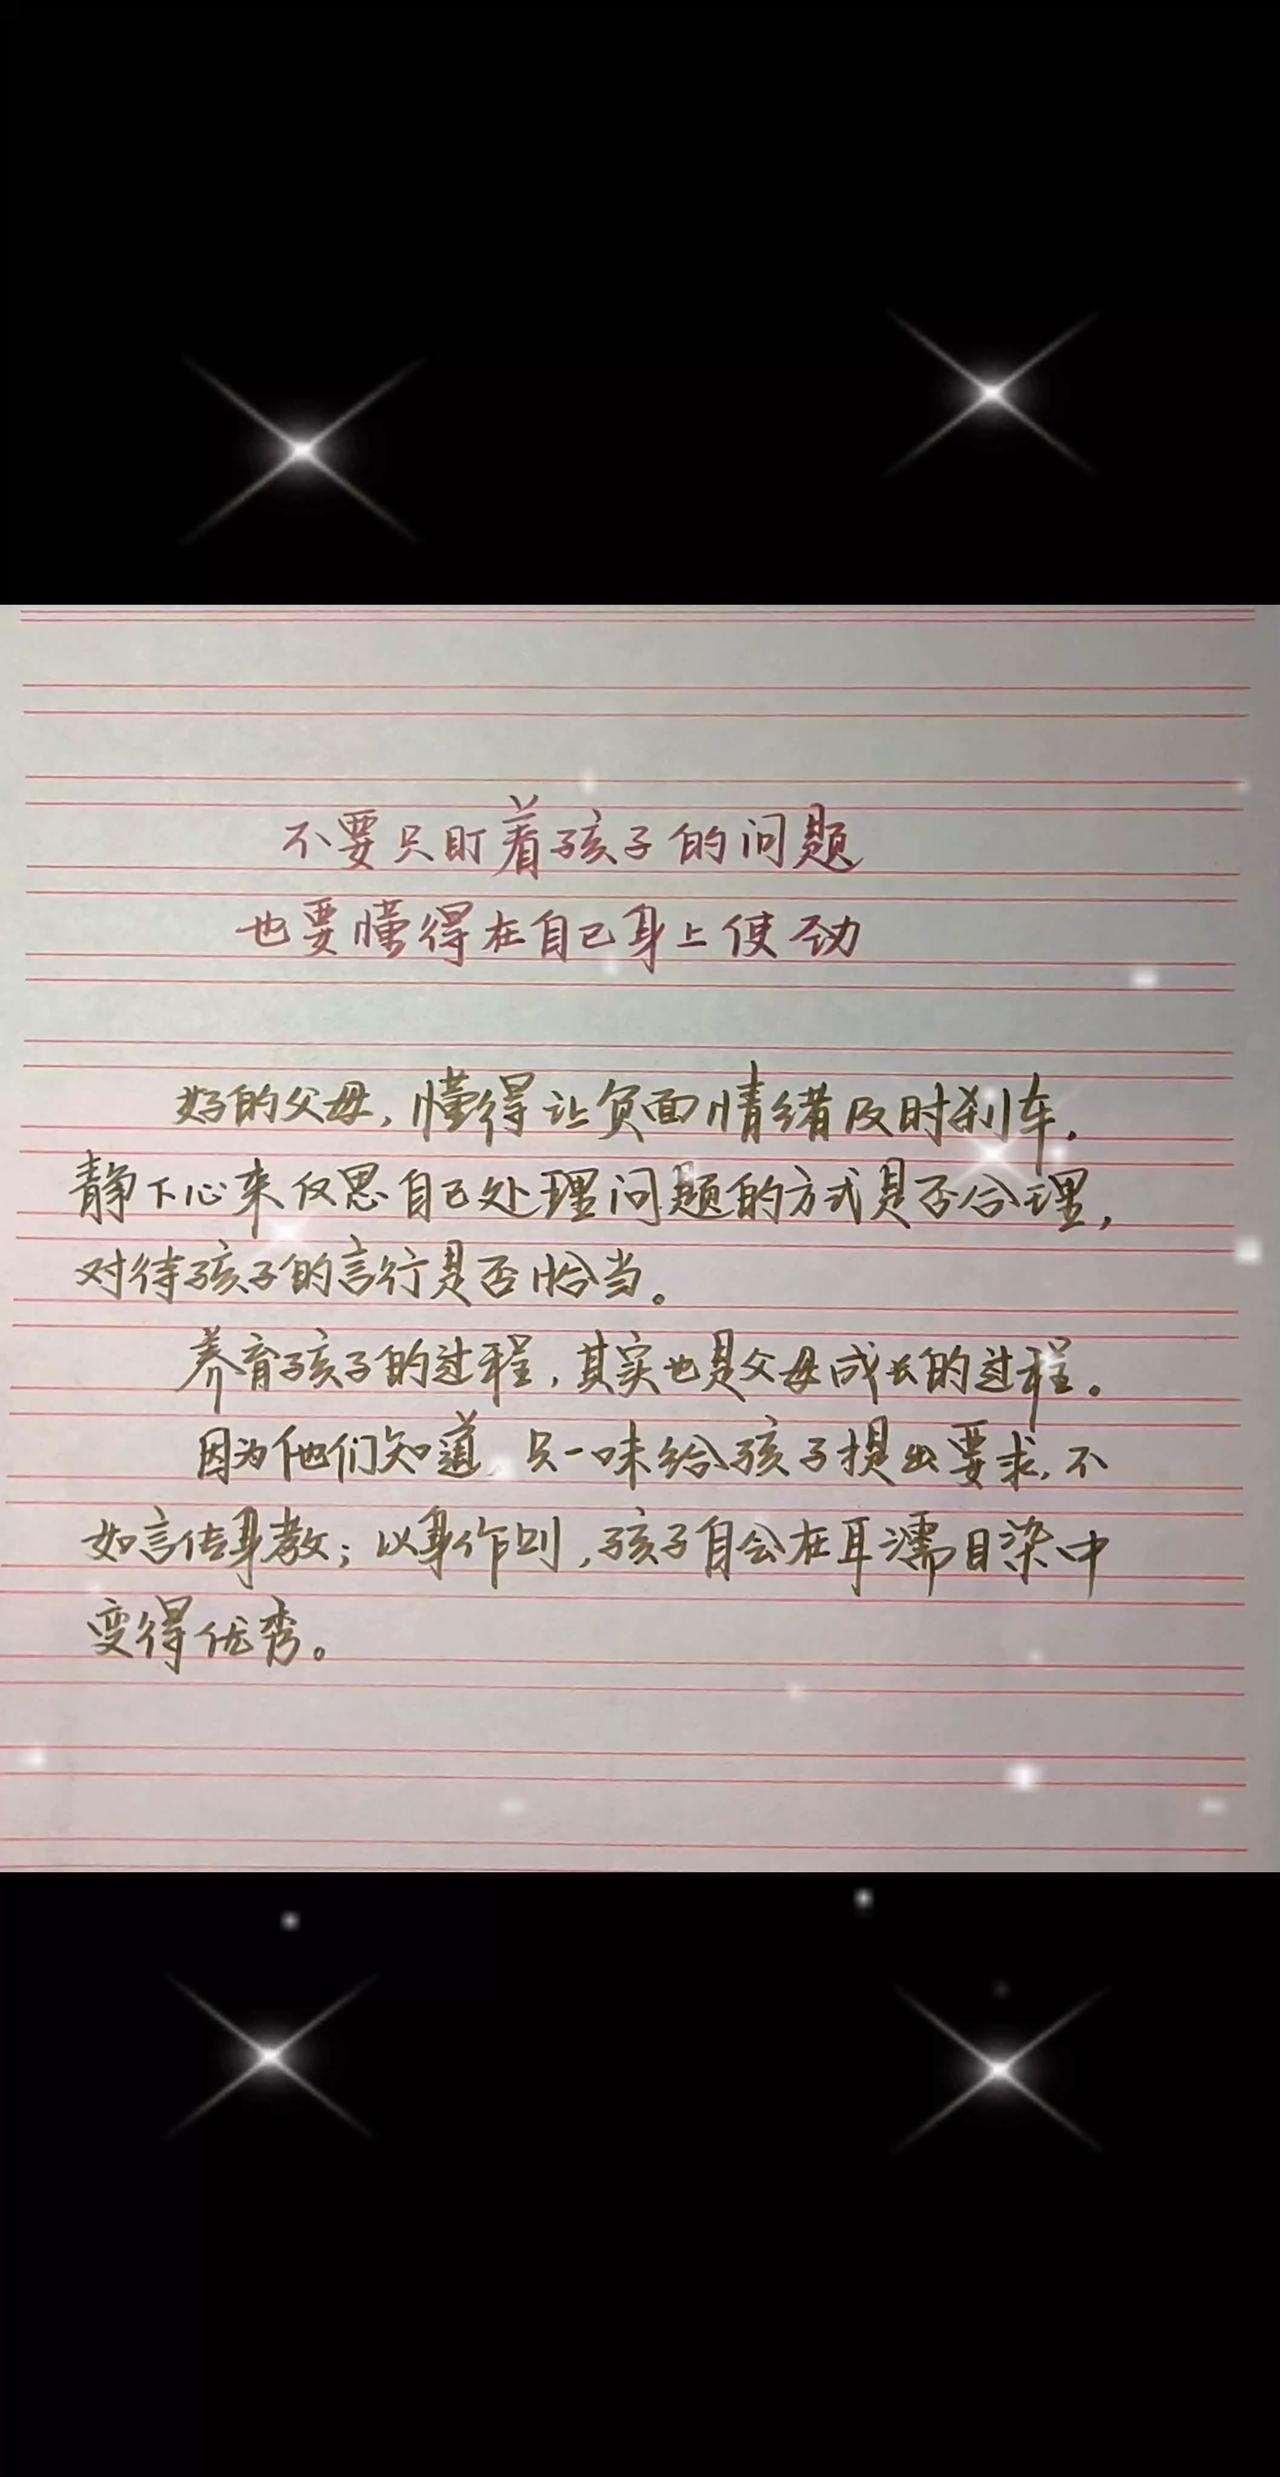 不要只盯着孩子的问题
也要懂得在自己身上使劲
好的父母，懂得让负面情绪及时刹车，
静下心来仅思自己处理问题的方式是否合理，
对待孩子的言行是否恰当。
养育孩子的过程，其实也是父母成长的过程。
因为他们知道，只一味给孩子提出要求，不
如言传身教；以身作则，孩子自会在耳濡目染中
变得优秀。